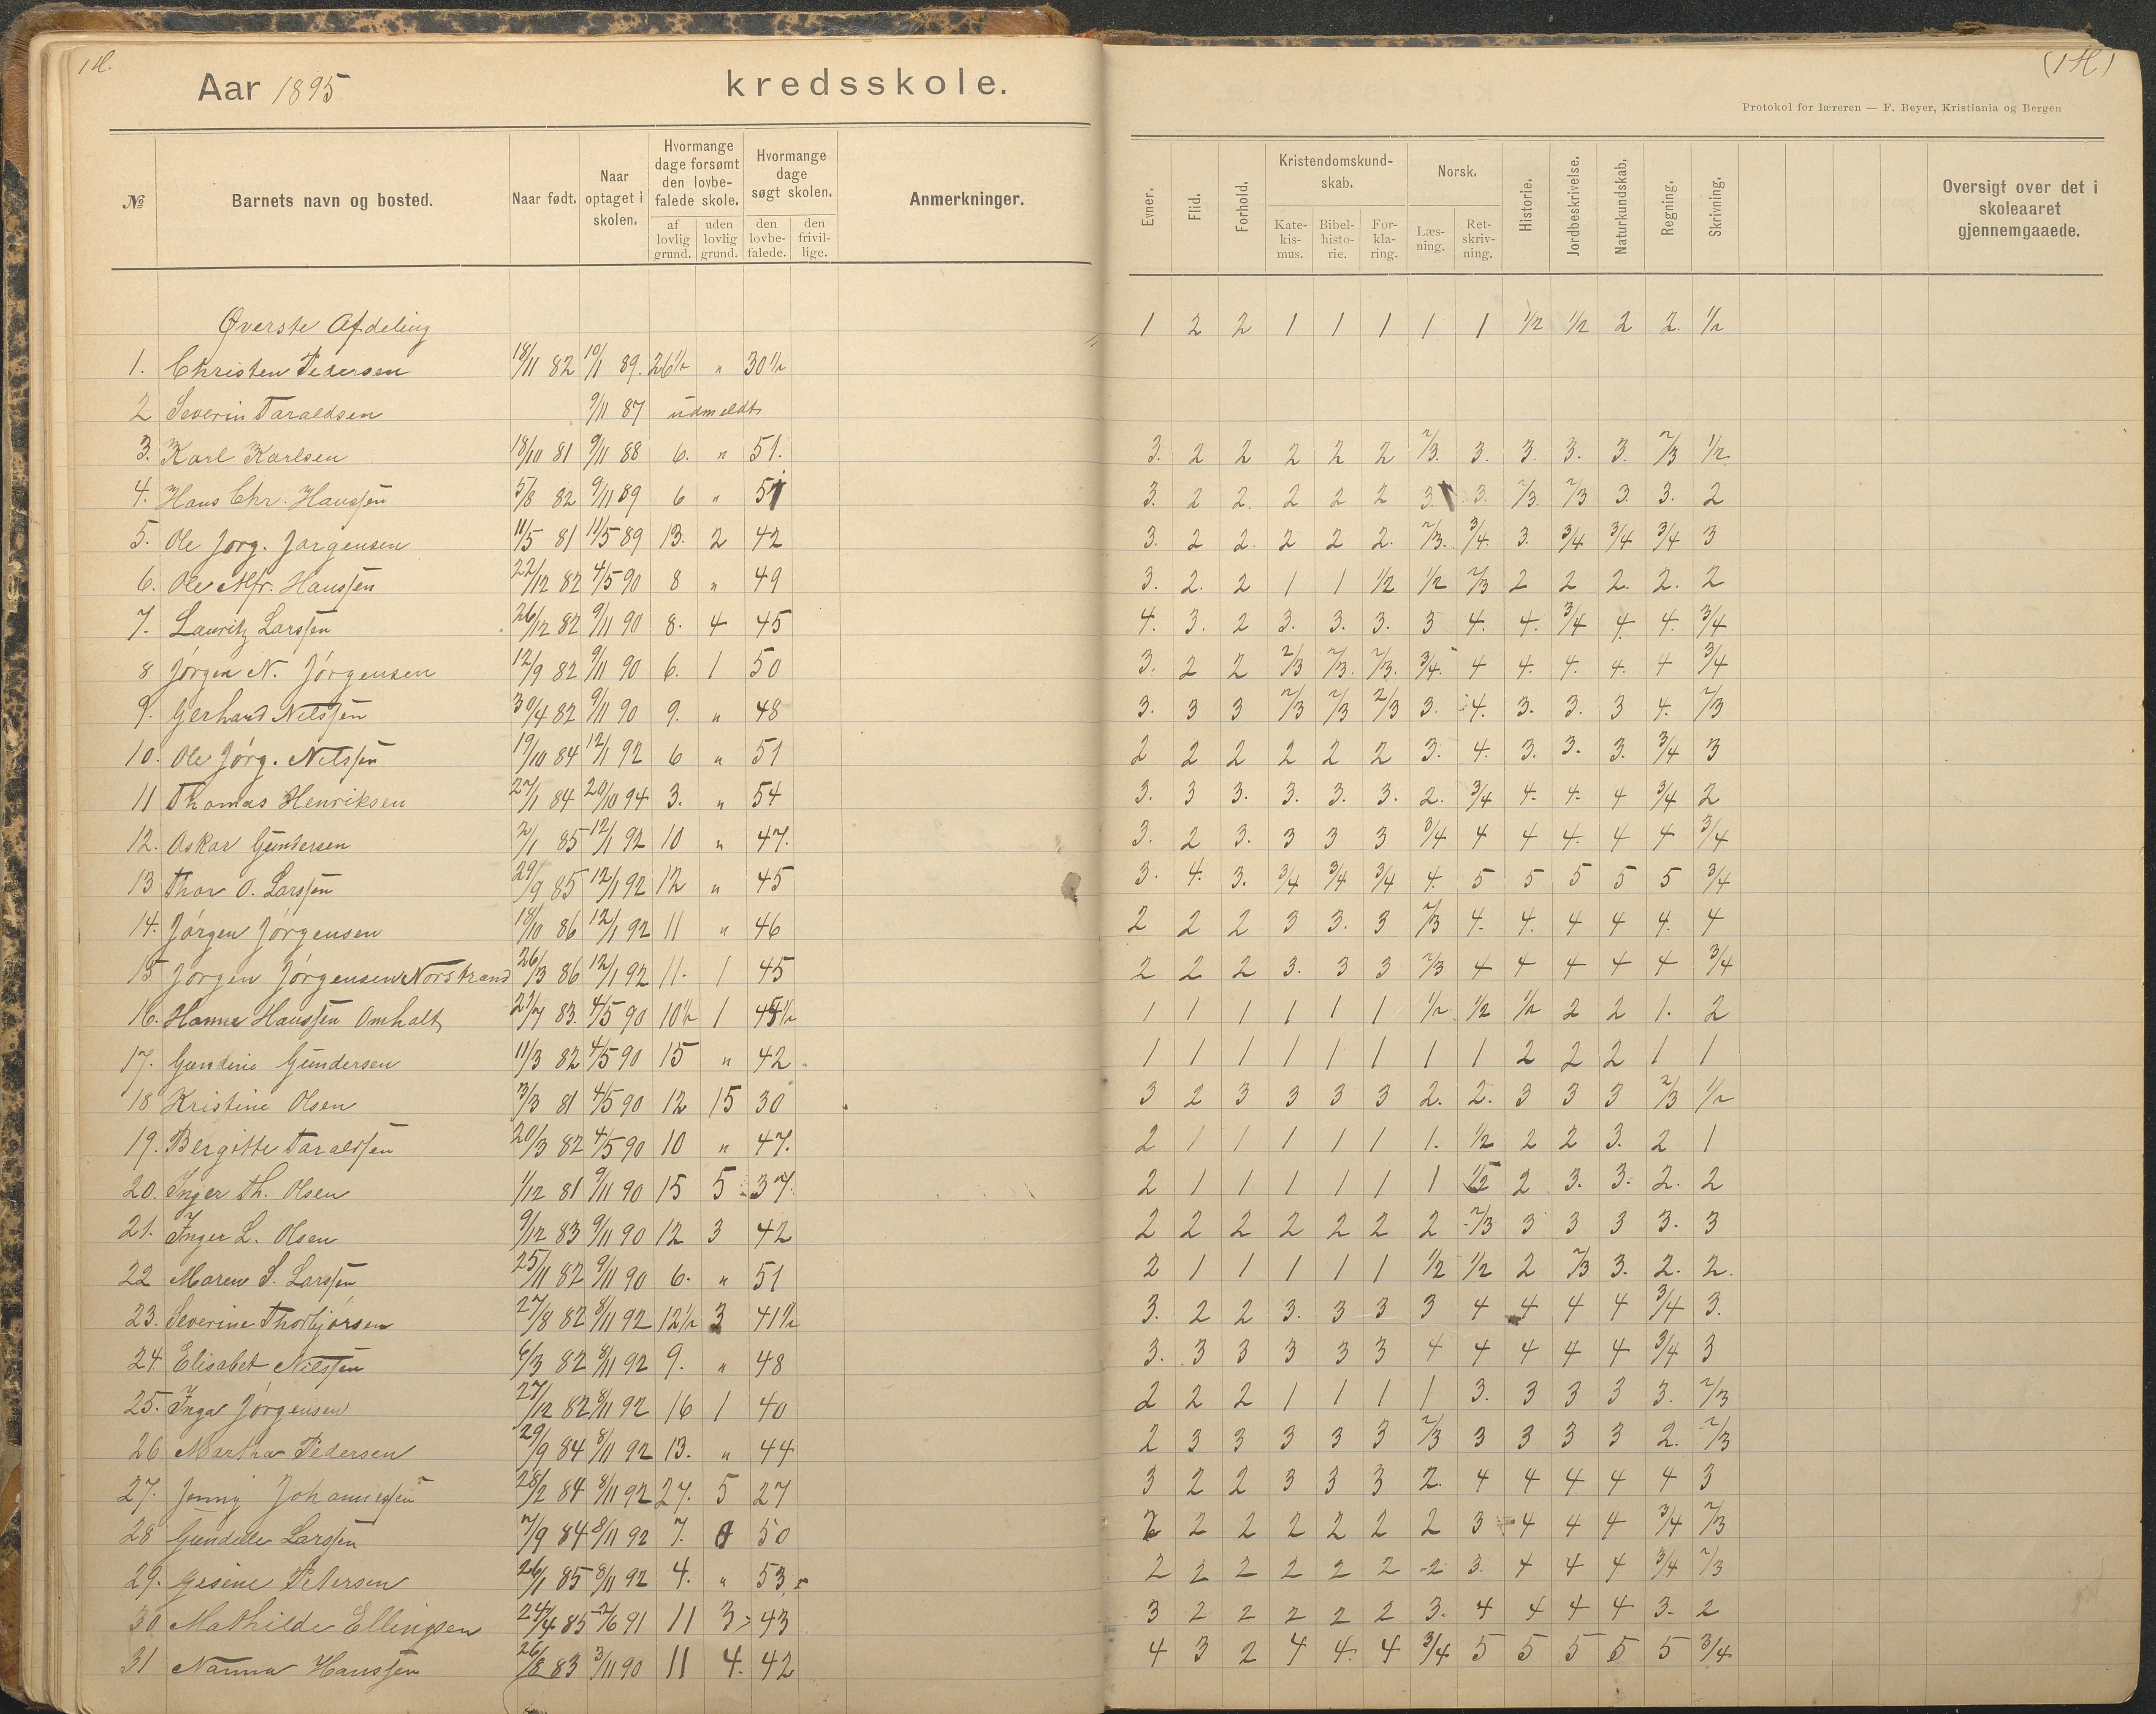 14.
(14)
Aar 1895 kredsskole.
Protokol for læreren — F. Beyer, Kristiania og Bergen
№ Barnets navn og bosted. Naar født. Naar optaget i skolen. Hvormange dage forsømt den lovbefalede skole. af lovlig grund. uden lovlig grund. Hvormange dage søgt skolen. den lovbefalede. den frivillige. Anmerkninger. Evner. Flid. Forhold. Kristendomskundskab. Katekismus. Bibelhistorie. Forklaring. Norsk. Læsning. Retskrivning. Historie. Jordbeskrivelse. Naturkundskab. Regning. Skrivning. Oversigt over det i skoleaaret gjennemgaaede.
Øverste Afdeling
1. Christen Pedersen 18/11 82 10/1 89. 26½ " 30½ 1 2 2 1 1 1 1 1 1/2 1/2 2 2. 1/2
2 Severin Taraldsen 9/11 87 udmeldt
3. Karl Karlsen 18/10 81 9/11 88 6. " 51. 3. 2 2 2 2 2 2/3. 3. 3. 3. 3. 2/3 1/2
4. Hans Chr. Hanssen 5/8 82 9/11 89 6 " 51 3. 2 2. 2 2 2 3. 3. 2/3. 2/3 3. 3. 2
5. Ole Jørg. Jørgensen 11/5 81 11/5 89 13. 2 42 3. 2 2. 2 2 2. 2/3. 3/4. 3. 3/4 3/4 3/4 3
6. Ole Alfr. Hanssen 22/12 82 4/5 90 8 " 49 3. 2. 2 1 1 1/2 1/2 2/3 2 2 2. 2. 2
7. Lauritz Larssen 26/12 82 9/11 90 8. 4 45 4. 3. 2 3. 3. 3. 3 4. 4. 3/4 4. 4. 3/4
8 Jørgen N. Jørgensen 12/9 82 9/11 90 6. 1 50 3. 2 2 2/3 2/3. 2/3. 3/4. 4 4. 4. 4. 4 3/4
9. Gerhard Nilssen 30/4 82 9/11 90 9. " 48 3. 3 3 2/3 2/3 2/3 3. 4. 3. 3. 3 4. 2/3
10. Ole Jørg. Nilssen 19/10 84 12/1 92 6 " 51 2 2 2 2 2 2 3. 4. 3. 3. 3. 3/4 3
11 Thomas Henriksen 27/1 84 20/10 94 3. " 54 3. 3 3. 3. 3. 3. 2. 3/4 4. 4. 4 3/4 2
12. Oskar Gundersen 2/1 85 12/1 92 10 " 47. 3. 2 3. 3 3 3 3/4 4 4 4. 4 4 3/4
13 Thor O. Larssen 29/9 85 12/1 92 12 " 45 3. 4. 3. 3/4 3/4 3/4 4. 5 5 5 5 5 3/4
14. Jørgen Jørgensen 18/10 86 12/1 92 11 " 46 2 2 2 3 3. 3 2/3 4. 4. 4 4 4. 4
15 Jørgen Jørgensen Norstrand 26/3 86 12/1 92 11. 1 45 2 2 2 3. 3 3 2/3 4 4 4 4 4 3/4
16. Hanna Hanssen Omholt 4/5 90 10½ 1 1 1 1 1 1 1 1/2 1/2 1/2 2 2 1. 2
17. Gundine Gundersen 11/3 82 4/5 90 15 " 42 1 1 1 1 1 1 1 1 2 2 2 1 1
18 Kristine Olsen 3/3 81 4/5 90 12 15 30 3 2 3 3 3 3 2. 2. 3 3 3 2/3 1/2
19. Bergitte Taraldsen 20/3 82 4/5 90 10 " 47. 2 1 1 1 1 1 1. 1/2 2 2 3. 2 1
20. Inger Th. Olsen 1/12 81 9/11 90 15 5 37. 2 1 1 1 1 1 1 1/2 2 3. 3. 2. 2
21. Inger L. Olsen 9/12 83 9/11 90 12 3 42 2 2 2 2 2 2 2 2/3 3 3 3 3. 3
22 Maren S. Larssen 25/11 82 9/11 90 6. " 51 2 1 1 1 1 1 1/2 1/2 2 2/3 3. 2. 2.
23. Severine Thorbjørsen 27/8 82 8/11 92 12½ 3 41½ 3. 2 2 3. 3 3 3 4 4 4 4 3/4 3.
24 Elisabet Nilssen 6/3 82 8/11 92 9. " 48 3. 3 3 3 3 3 4 4 4 4 4 3/4 3
25. Inga Jørgensen 27/12 82 8/11 92 16 1 40 2 2 2 1 1 1 1 3. 3 3 3 3. 2/3
26 Martha Pedersen 29/9 84 8/11 92 13. " 44 2 3 3 3 3 3 2/3 3 3 3 3 2. 2/3
27. Jenny Johannessen 28/2 84 8/11 92 27. 5 27 3 2 2 3 3 3 2. 4 4 4 4 4 3
28 Gundelle Larssen 7/9 84 8/11 92 7. 50 2 2 2 2 2 2 2 3 4 4 4 3/4 2/3
29. Gesine Petersen 26/1 85 8/11 92 4. " 53 2 2 2 2 2 2 2 3. 4 4 4 3/4 2/3
30 Mathilde Ellingsen 24/4 85 2/6 91 11 3 43 3 2 2 2 2 2 3. 4 4 4 4 3. 2
31 Nanna Hanssen 26/8 83 3/11 90 11 4. 42 4 3 2 4 4. 4 3/4 5 5 5 5 5 3/4